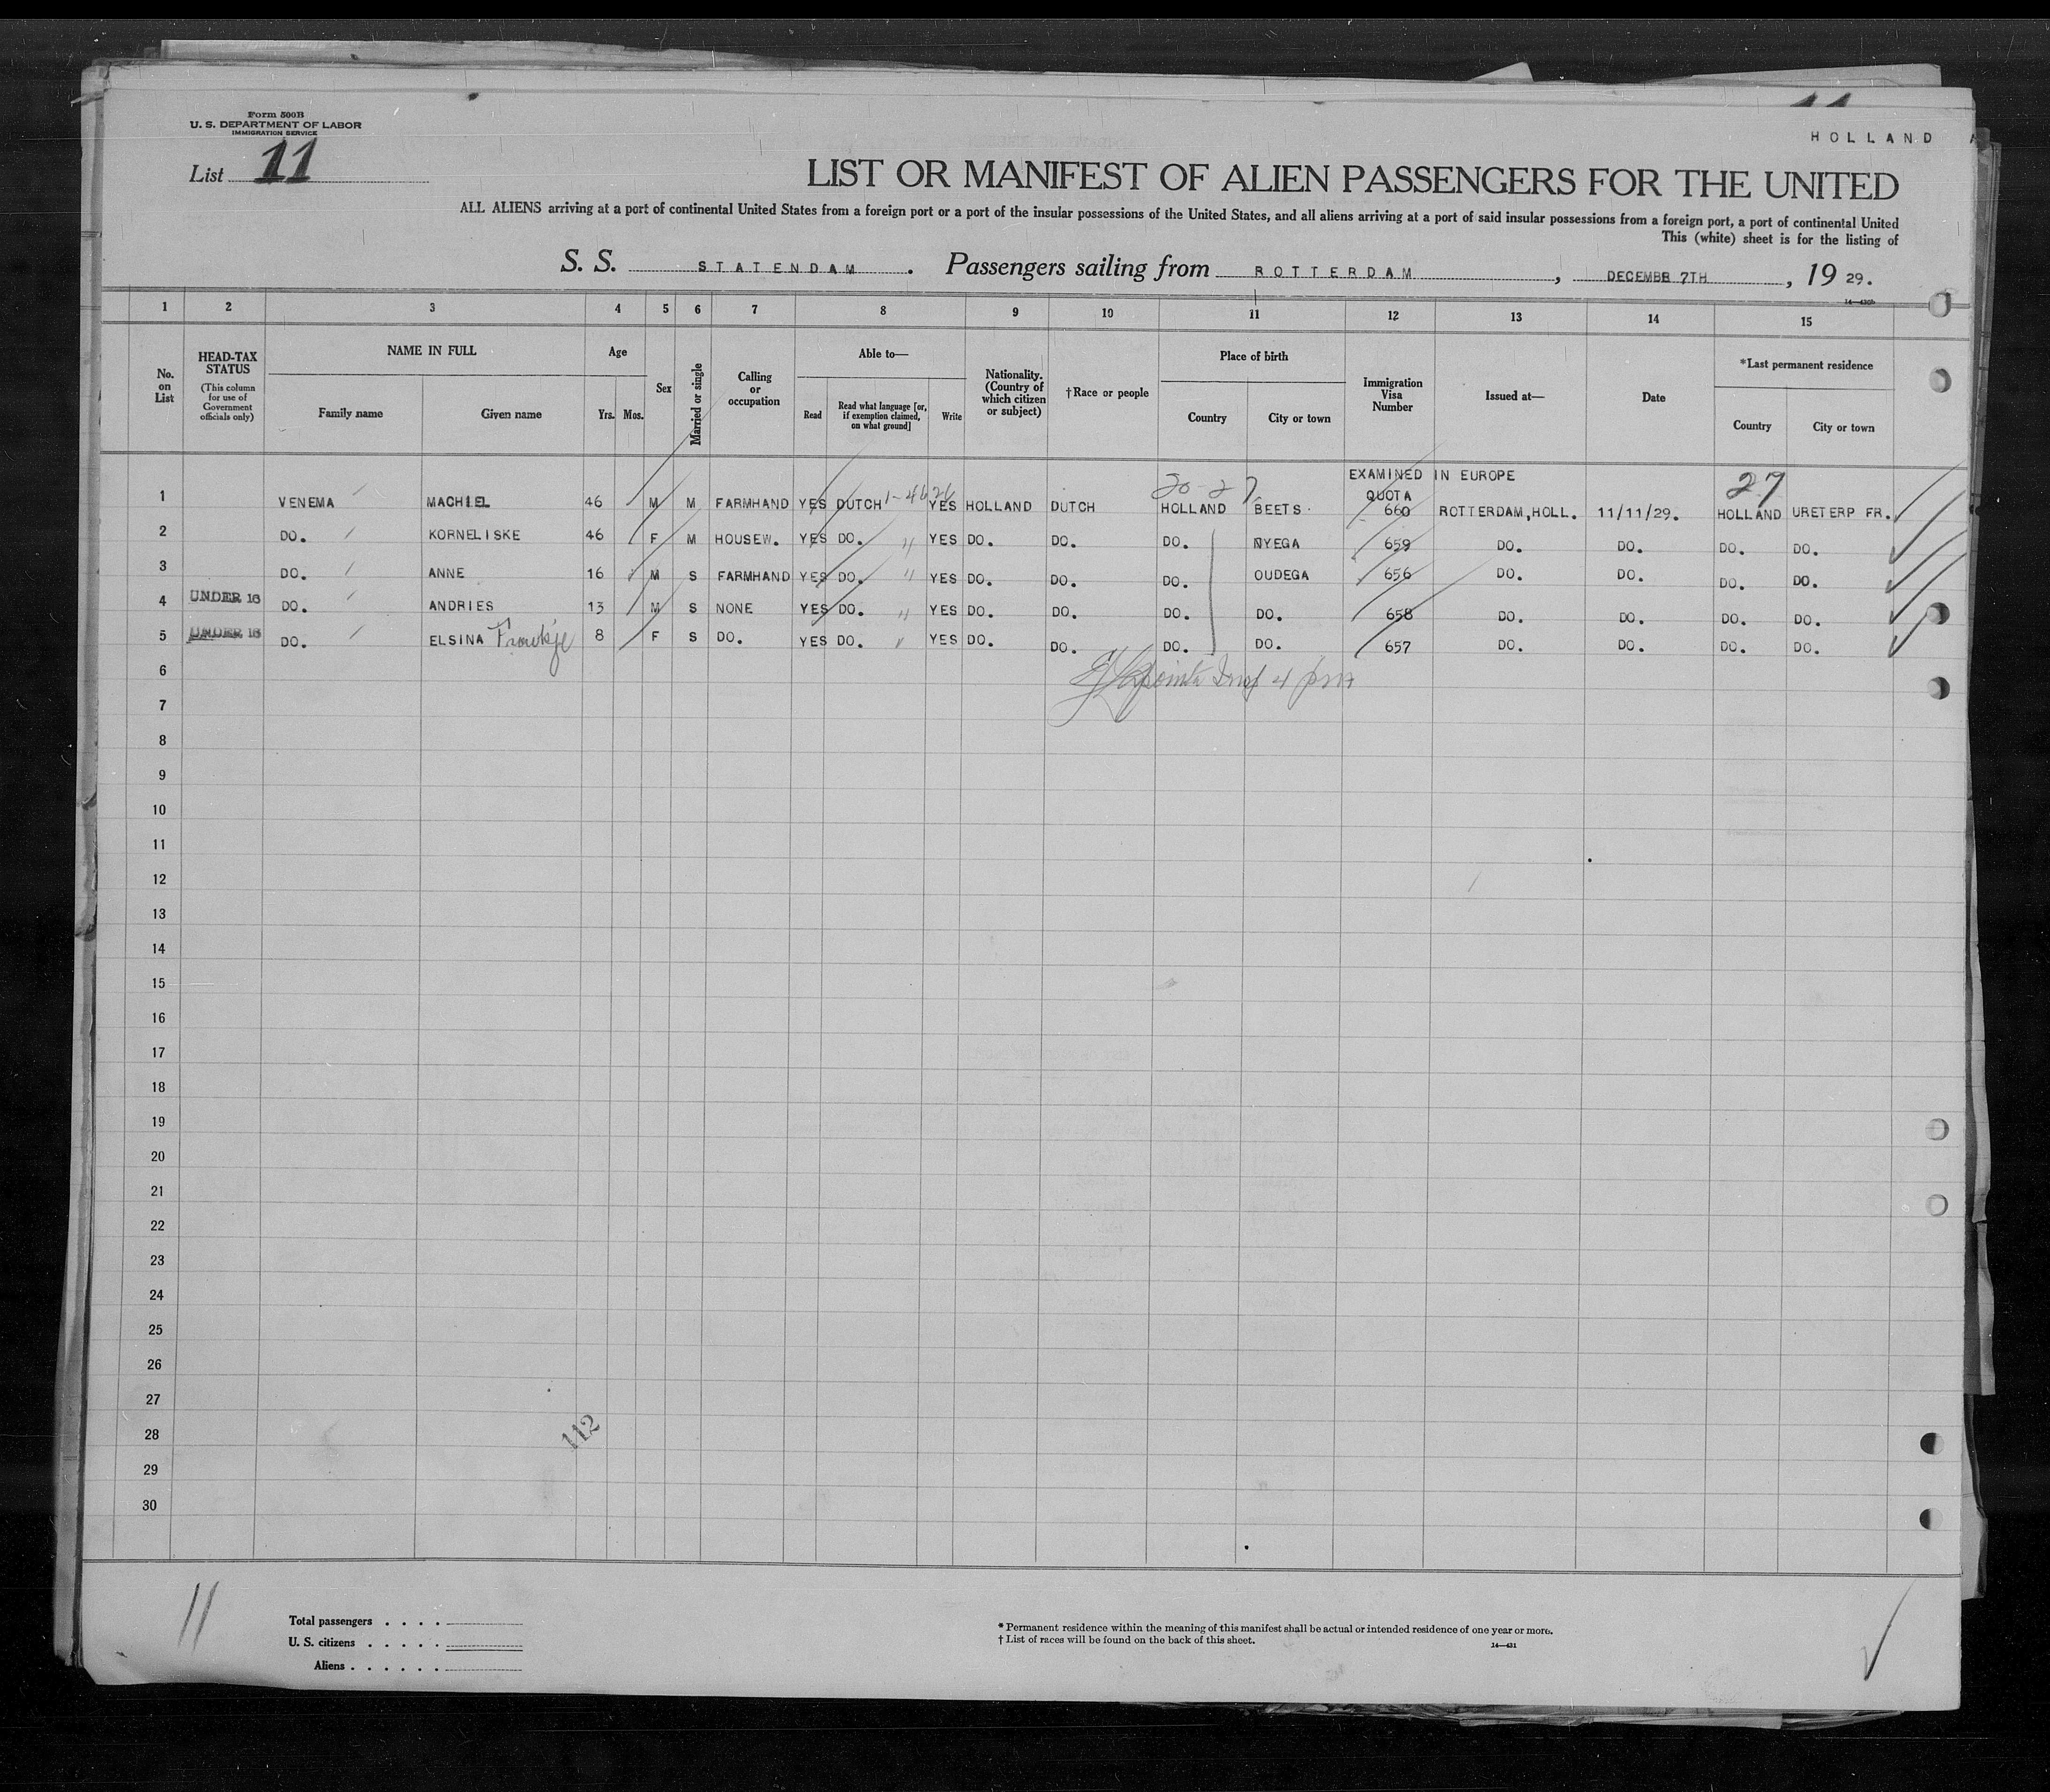 Form 500B
U. S. DEPARTMENT OF LABOR
IMMIGRATION SERVICE
HOLLAND A
List 11
LIST OR MANIFEST OF ALIEN PASSENGERS FOR THE UNITED
ALL ALIENS arriving at a port of continental United States from a foreign port or a port of the insular possessions of the United States, and all aliens arriving at a port of said insular possessions from a foreign port, a port of continental United
This (white) sheet is for the listing of
S. S. STATENDAM. Passengers sailing from ROTTERDAM, DECEMBR 7TH, 19 29.
14—430b
1 2 3 4 5 6 7 8 9 10 11 12 13 14 15
No. on List
HEAD-TAX STATUS
(This column for use of Government officials only)
NAME IN FULL
Family name Given name
Age
Yrs. Mos.
Sex
Married or single
Calling or occupation
Able to—
Read Read what language [or, if exemption claimed, on what ground] Write
Nationality. (Country of which citizen or subject)
†Race or people
Place of birth
Country City or town
Immigration Visa Number
Issued at—
Date
*Last permanent residence
Country City or town
EXAMINED IN EUROPE
QUOTA
20-27 27
1 VENEMA MACHIEL 46 M M FARMHAND YES DUTCH YES HOLLAND DUTCH HOLLAND BEETS 660 ROTTERDAM,HOLL. 11/11/29. HOLLAND URETERP FR.
2 DO. KORNELISKE 46 F M HOUSEW. YES DO. " YES DO. DO. DO. NYEGA 659 DO. DO. DO. DO.
3 DO. ANNE 16 M S FARMHAND YES DO. " YES DO. DO. DO. OUDEGA 656 DO. DO. DO. DO.
4 UNDER 16 DO. ANDRIES 13 M S NONE YES DO. " YES DO. DO. DO. DO. 658 DO. DO. DO. DO.
5 UNDER 16 DO. ELSINA Frowkje 8 F S DO. YES DO. " YES DO. DO. DO. DO. 657 DO. DO. DO. DO.
6
7
8
9
10
11
12
13
14
15
16
17
18
19
20
21
22
23
24
25
26
27
28
112
29
30
11
Total passengers . . . .
U. S. citizens . . . . .
Aliens . . . . . .
* Permanent residence within the meaning of this manifest shall be actual or intended residence of one year or more.
† List of races will be found on the back of this sheet.
14—431